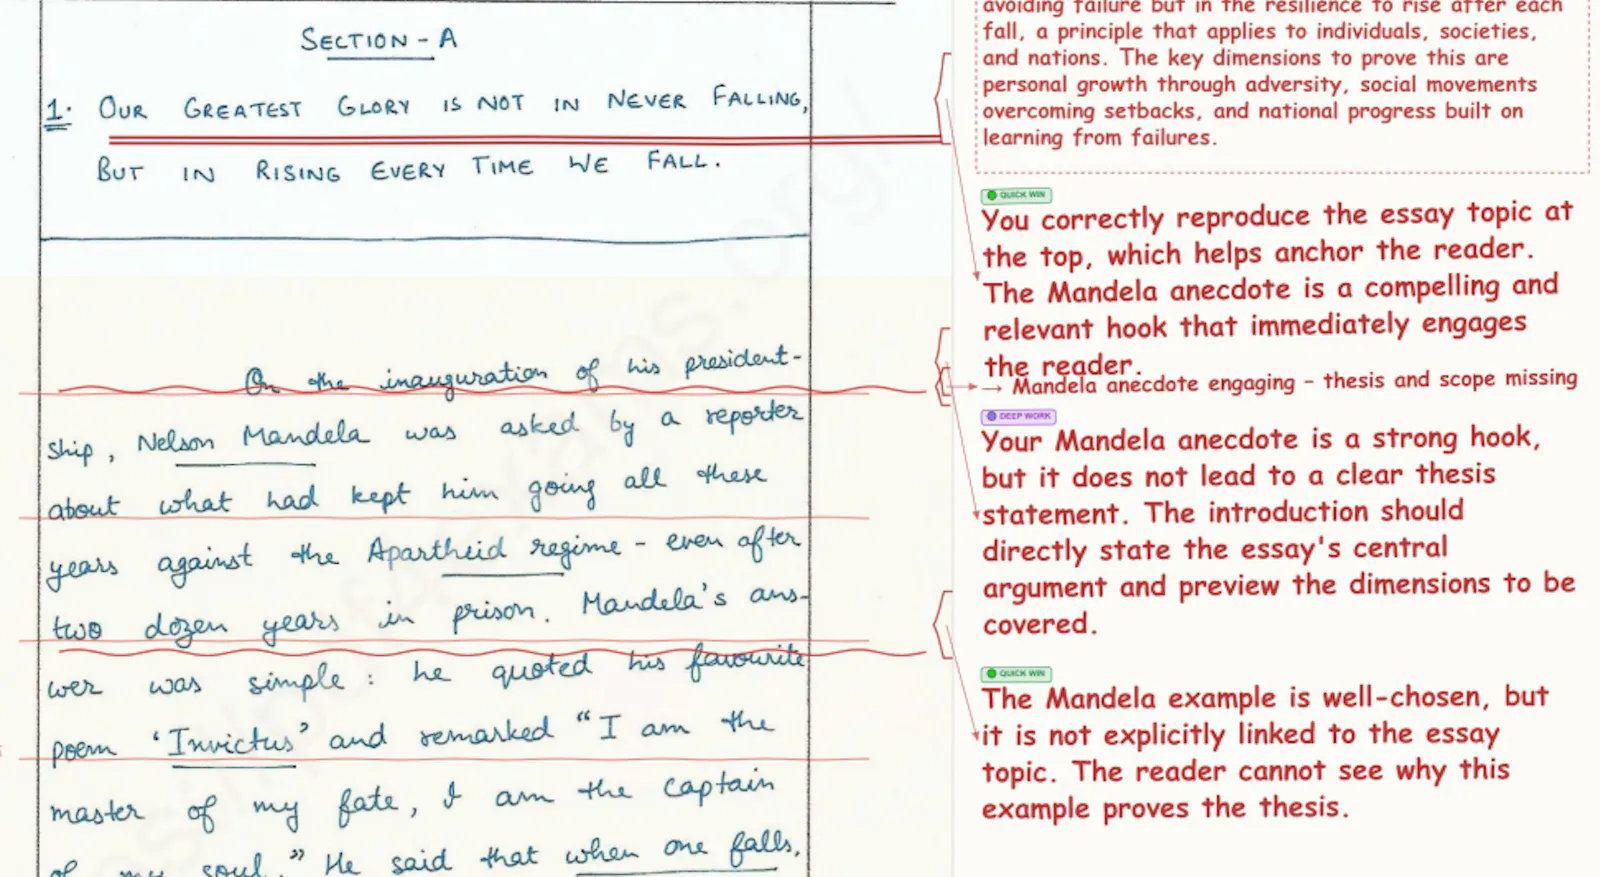 SECTION - A
1. OUR GREATEST GLORY IS NOT IN NEVER FALLING,
BUT IN RISING EVERY TIME WE FALL.
On the inauguration of his president-
ship, Nelson Mandela was asked by a reporter
about what had kept him going all these
years against the Apartheid regime - even after
two dozen years in prison. Mandela's ans-
wer was simple : he quoted his favourite
poem 'Invictus' and remarked "I am the
master of my fate, I am the captain
of my soul." He said that when one falls,
avoiding failure but in the resilience to rise after each
fall, a principle that applies to individuals, societies,
and nations. The key dimensions to prove this are
personal growth through adversity, social movements
overcoming setbacks, and national progress built on
learning from failures.
QUICK WIN
You correctly reproduce the essay topic at
the top, which helps anchor the reader.
The Mandela anecdote is a compelling and
relevant hook that immediately engages
the reader.
→ Mandela anecdote engaging - thesis and scope missing
DEEP WORK
Your Mandela anecdote is a strong hook,
but it does not lead to a clear thesis
statement. The introduction should
directly state the essay's central
argument and preview the dimensions to be
covered.
QUICK WIN
The Mandela example is well-chosen, but
it is not explicitly linked to the essay
topic. The reader cannot see why this
example proves the thesis.